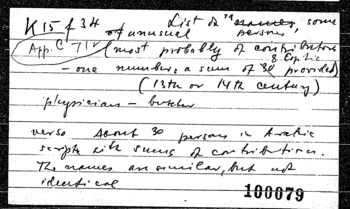 K 15 f 34 List of names, some
of unusual persons,
App. C 71V (most probably of contributors
8 Coptic
– one number, a sum of 30 provided)
(13th or 14th century)
physician – butcher
verso About 30 persons in Arabic
script with sums of contributions.
The names are similar, but not
identical
100079